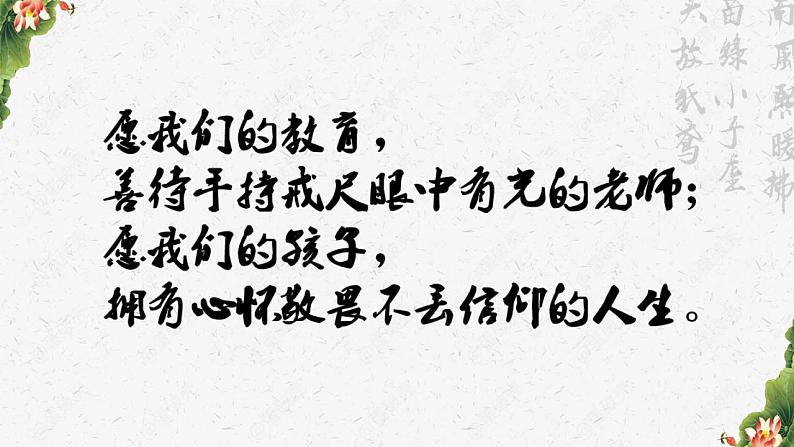 愿我们的教育，
善待手持戒尺眼中有光的老师；
愿我们的孩子，
拥有心怀敬畏不丢信仰的人生。
南风熙暖拂
苗绿小子座
头放纸鸢